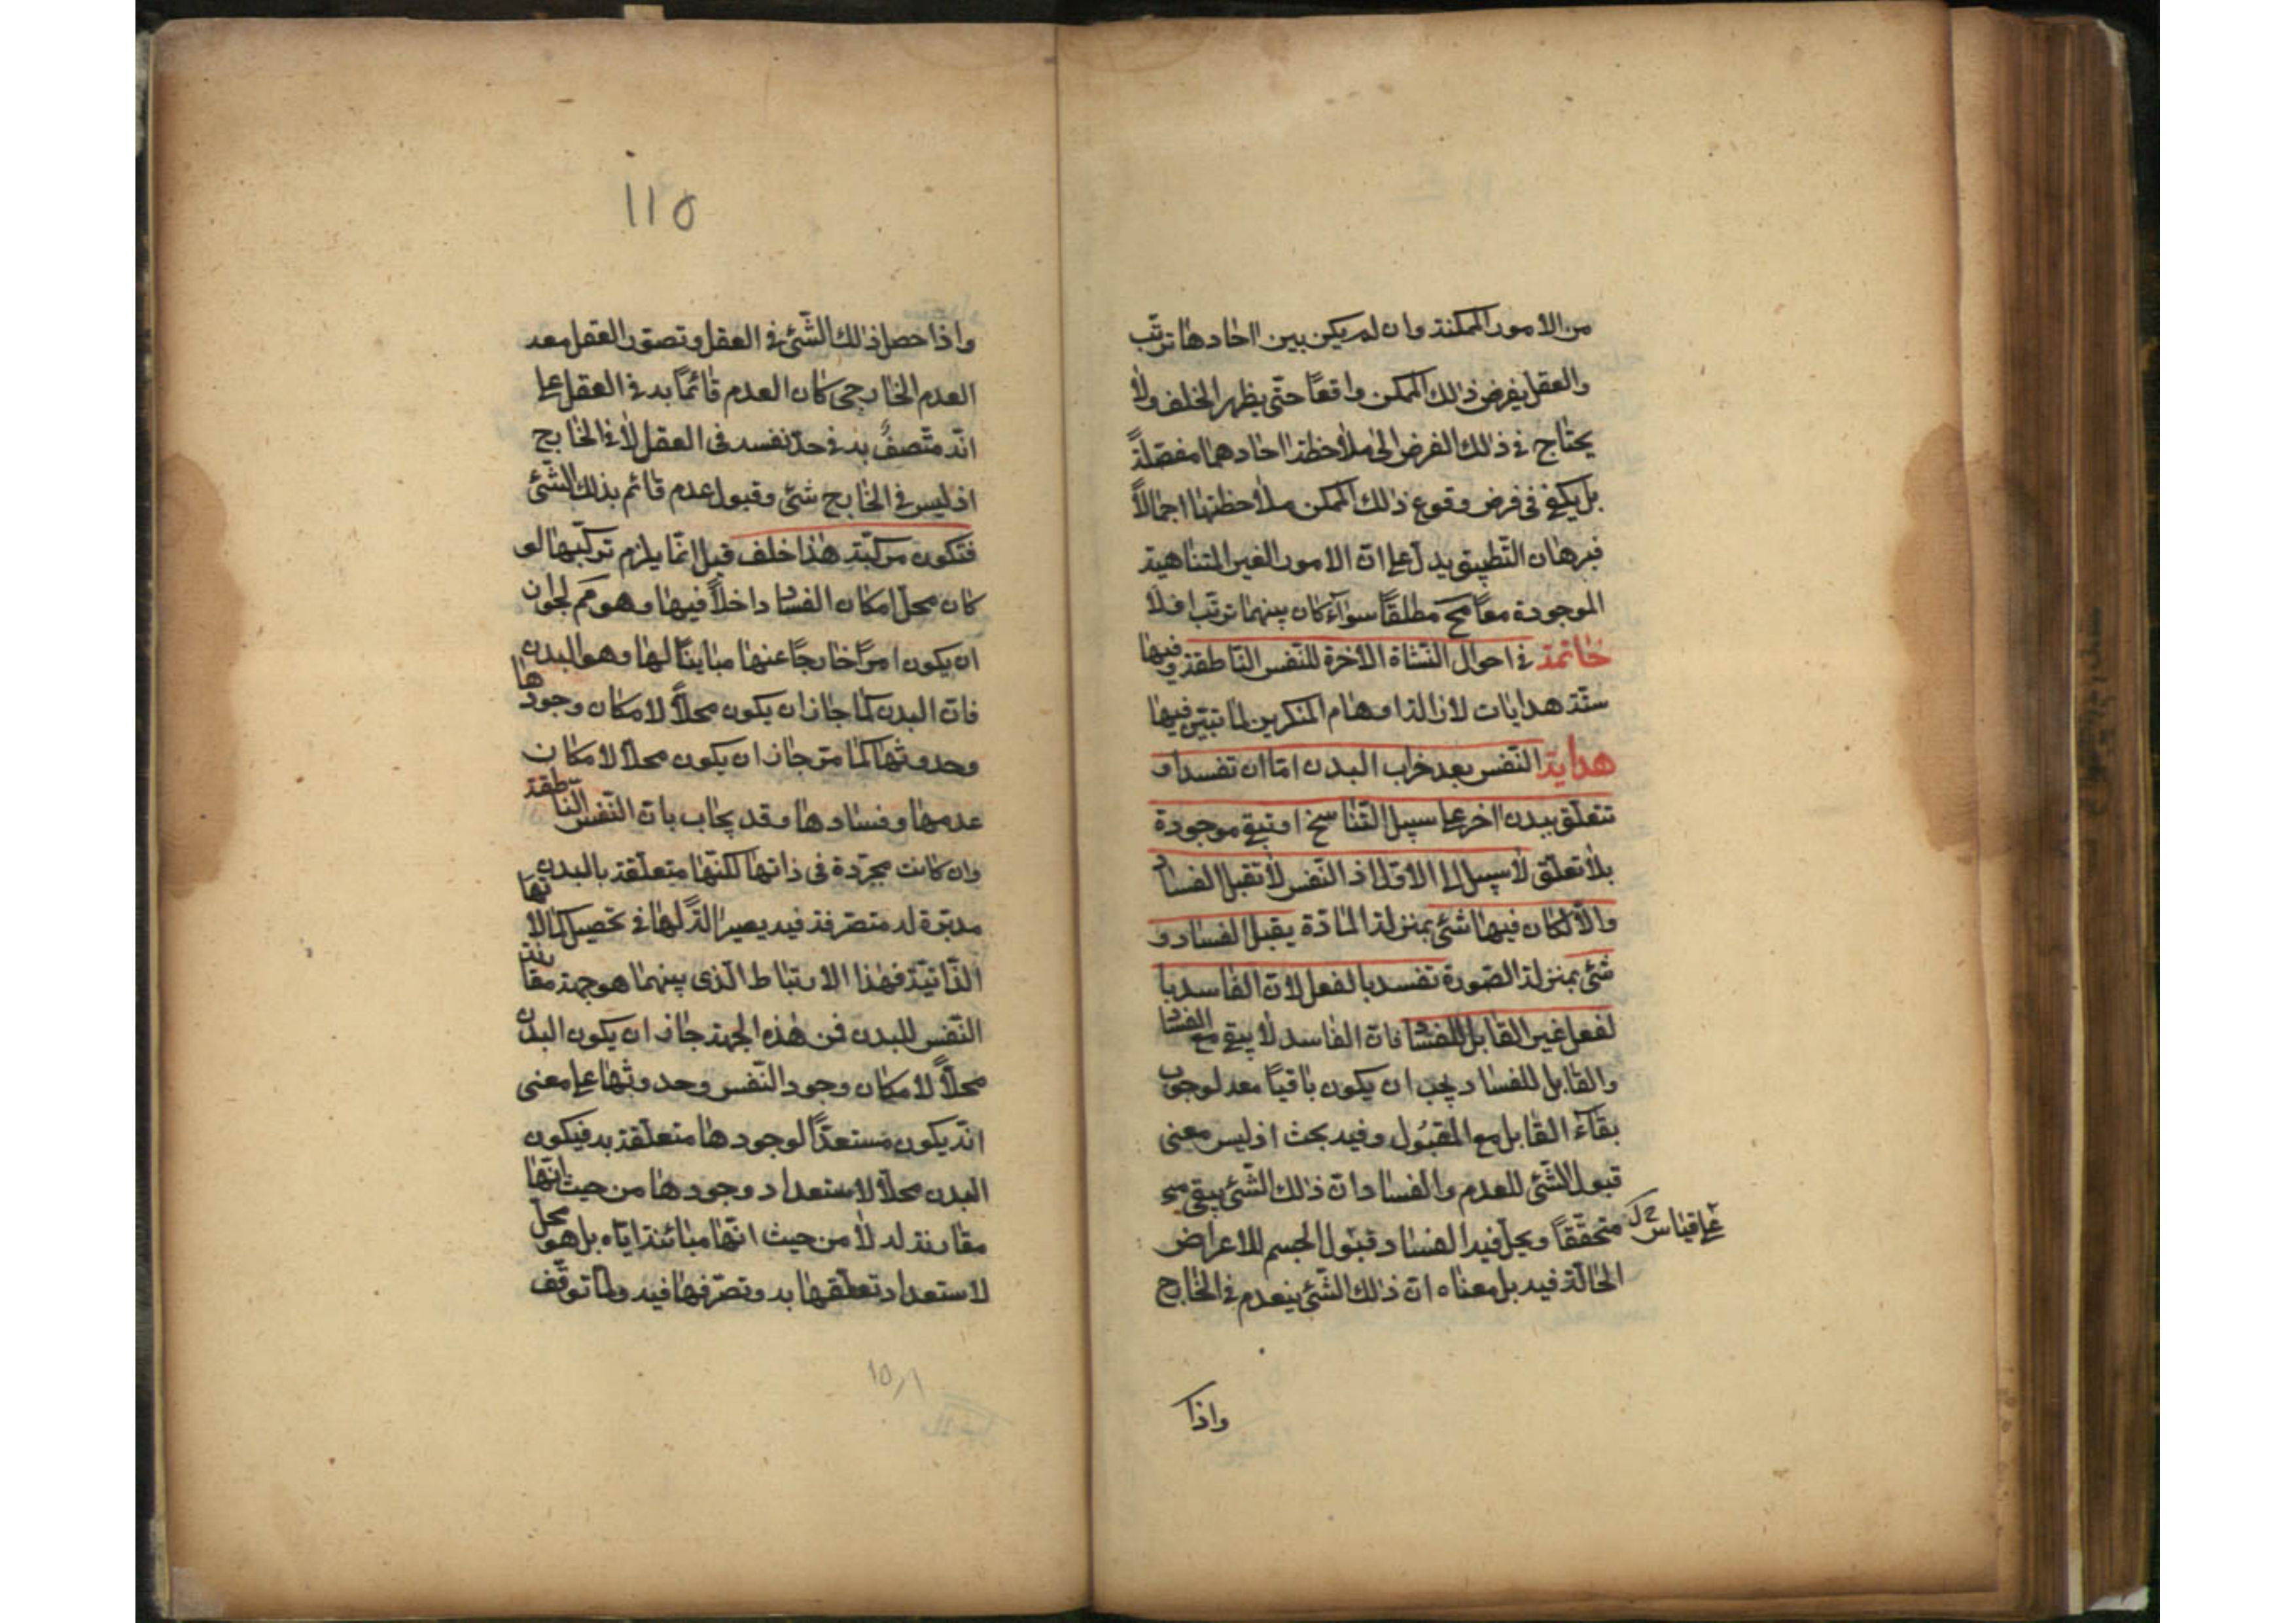 من الامور الممكنة وان لم يكن بين احادها ترتب
والعقل يفرض ذلك الممكن واقعًا حتّى يظهر الخلف ولا
يحتاج فى ذلك الفرض الى ملاحظة احادهما مفصّلةً
بل يكفى فى فرض وقوع ذلك الممكن ملاحظتها اجمالاً
فبرهان التّطبيق يدلّ على انّ الامور الغير المتناهية
الموجودة معًا مح مطلقًا سواء كان بينهما ترتّب او لا
خاتمة فى احوال النّشاة الاخرة للنّفس النّاطقة وفيها
ستّة هدايات لازالة اوهام المنكرين لما تبيّن فيها
هداية النّفس بعد خراب البدن امّا ان تفسد او
تتعلّق ببدن اخر على سبيل التّناسخ او تبقى موجودة
بلا تعلّق لا سبيل الى الاوّل اذ النّفس لا تقبل الفساد
والّا لكان فيها شئ بمنزلة المادّة يقبل الفساد و
شئ بمنزلة الصّورة تفسد بالفعل لانّ الفاسد با
لفعل غير القابل للفساد فانّ الفاسد لا يبقى مع الفساد
والقابل للفساد يجب ان يكون باقيًا معه لوجوب
بقاء القابل مع المقبول وفيه بحث اذ ليس معنى
قبول الشّئ للعدم والفساد انّ ذلك الشّئ يبقى
متحقّقًا ويحلّ فيه الفساد قبول الجسم للاعراض
على قياس
الحالّة فيه بل معناه انّ ذلك الشّئ ينعدم فى الخارج
واذا
١١٥
واذا حصل ذلك الشّئ فى العقل وتصوّر العقل معه
العدم الخارجى كان العدم قائمًا به فى العقل على
انّه متّصف به فى حدّ نفسه فى العقل لا فى الخارج
اذ ليس فى الخارج شئ وقبول عدم قائم بذلك الشّئ
فتكون مركّبة هذا خلف قيل انّما يلزم تركّبها لو
كان محلّ امكان الفساد داخلاً فيها وهو مم لجواز
ان يكون امرًا خارجًا عنها مباينًا لها وهو البدن
فانّ البدن كما جاز ان يكون محلاً لامكان وجودها
وحدوثها كما مرّ جاز ان يكون محلاً لامكان
عدمها وفسادها وقد يجاب بانّ النّفس النّاطقة
وان كانت مجرّدة فى ذاتها لكنّها متعلّقة بالبدن
مدبّرة له متصرّفة فيه يصير الة لها فى تحصيل كمالاتها
الذّاتيّة فهذا الارتباط الّذى بينهما هو جهة مقارنة
النّفس للبدن فمن هذه الجهة جاز ان يكون البدن
محلاً لامكان وجود النّفس وحدوثها على معنى
انّه يكون مستعدًّا لوجودها متعلّقة به فيكون
البدن محلاً لاستعداد وجودها من حيث انّها
مقارنة له لا من حيث انّها مبائنة ايّاه بل هو محلّ
لاستعداد تعلّقها به وتصرّفها فيه ولمّا توقّف